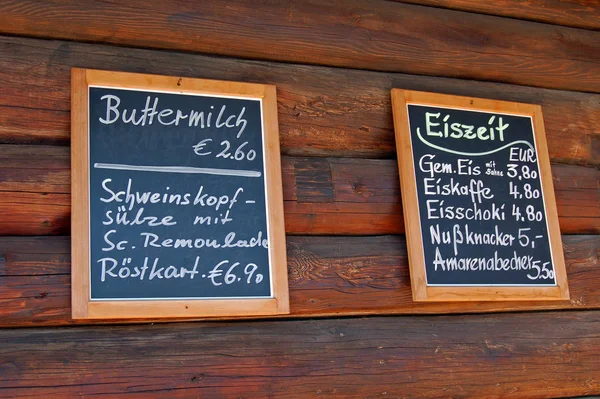 Buttermilch
€ 2.60
Schweinskopf-
sülze mit
Sc. Remoulade
Röstkart. €6.90
Eiszeit
EUR
Gem. Eis mit Sahne 3,80
Eiskaffe 4,80
Eisschoki 4,80
Nußknacker 5,-
Amarenabecher 5,50